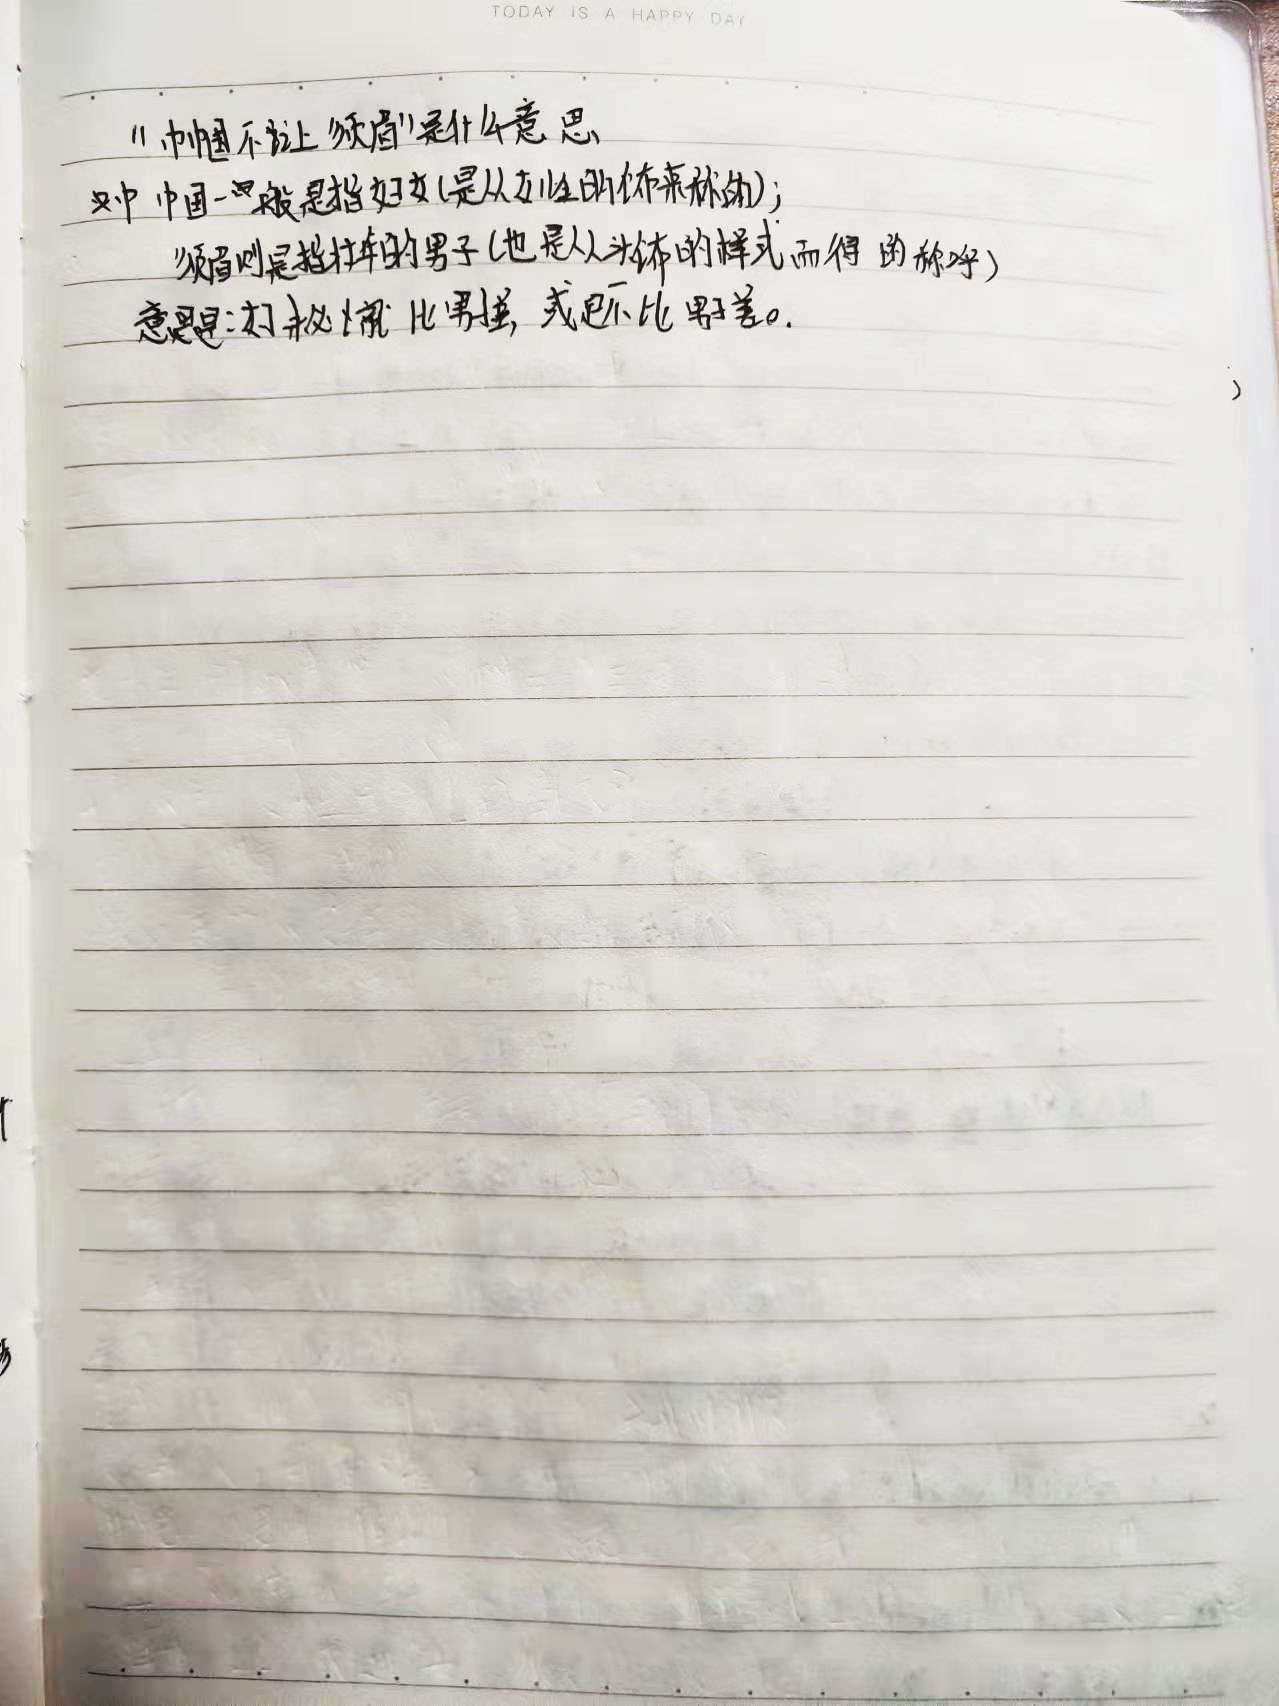 TODAY IS A HAPPY DAY
"巾帼不让须眉"是什么意思
巾国一般是指妇女(是从女性的饰来称的);
须眉则是指年的男子(也是从头饰的样式而得的称呼)
意思是:女子 比男强,或是不比男子差。